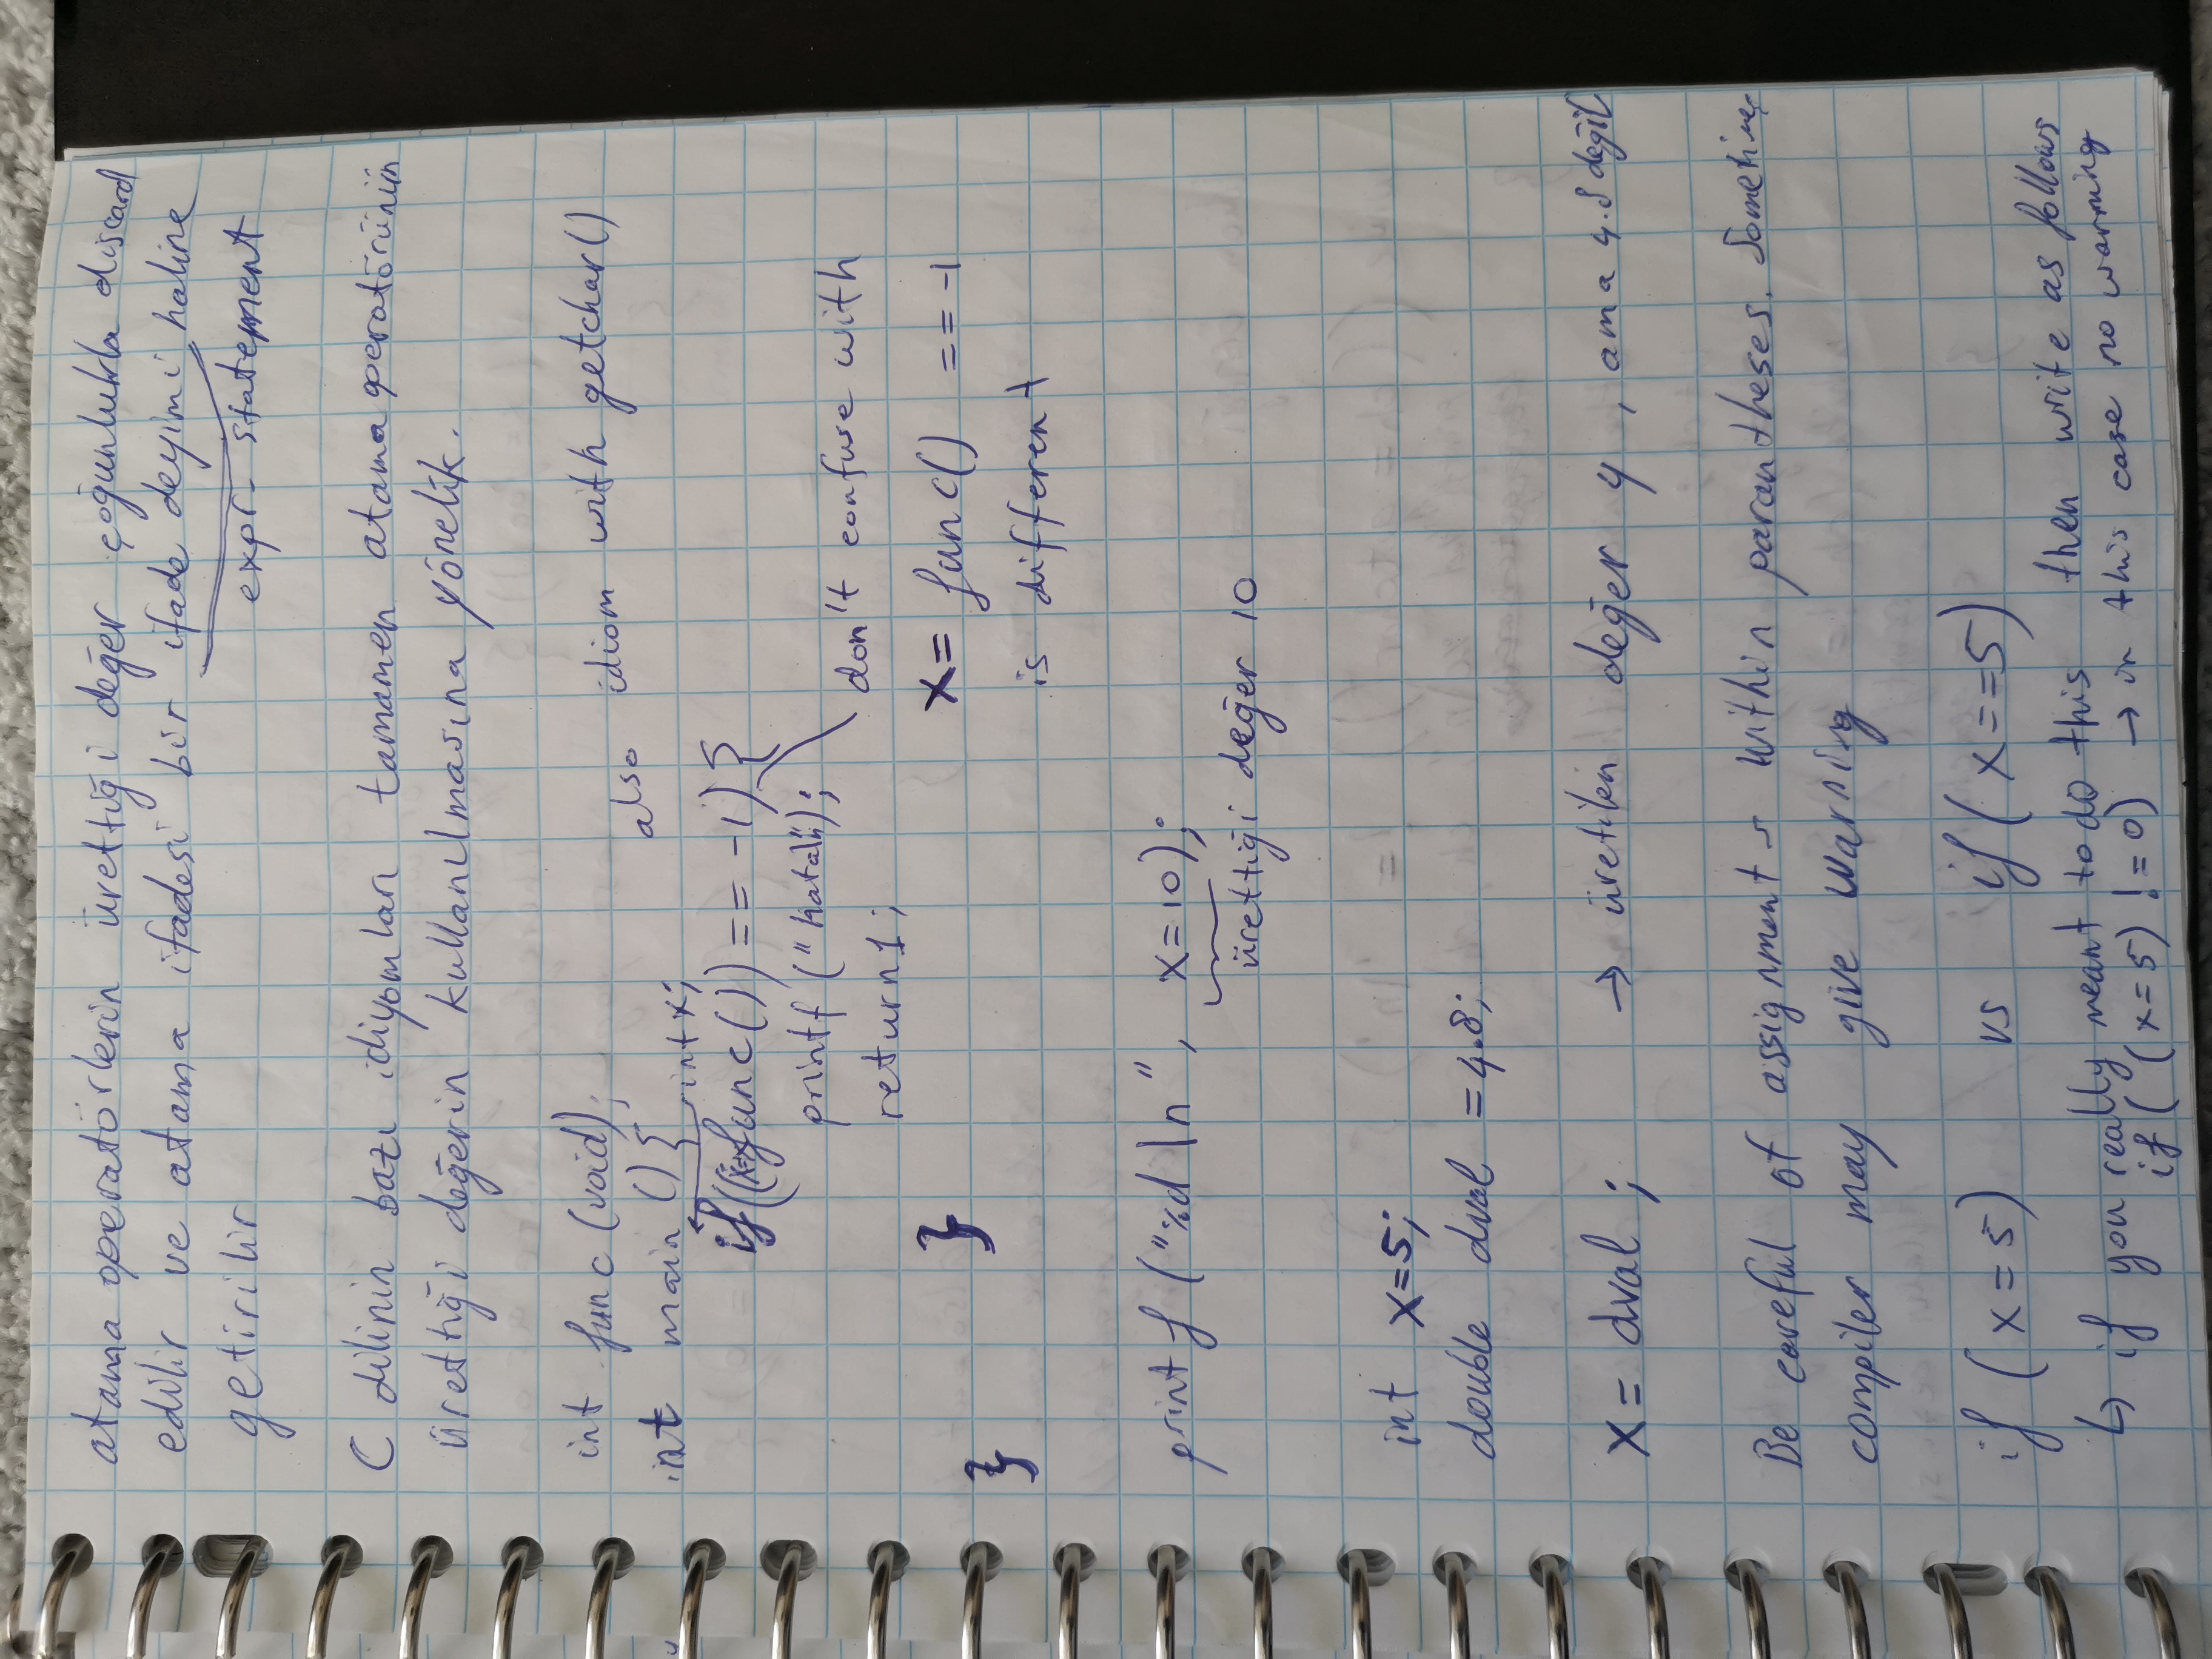 atama operatörlerin ürettiği değer çoğunlukla discard
edilir ve atama ifadesi bir ifade deyimi haline
getirilir
expr. statement
C dilinin bazı idiyomları tamamen atama operatörünün
ürettiği değerin kullanılmasına yönelik.
int func(void);
also idiom with getchar()
int main () {
int x;
if((x=func()) == -1) {
printf ("hata\n");
return 1;
don't confuse with
}
x = func() == -1
}
is different
printf ("%d \n", x=10);
ürettiği değer 10
int x=5;
double dval = 4.8;
x = dval ; → üretilen değer 4 , ama 4.8 değil
Be careful of assignments within parantheses. Sometimes
compiler may give warning
if ( x = 5) vs if ( x == 5)
↳ if you really meant to do this then write as follows
if ( (x=5) != 0) → in this case no warning